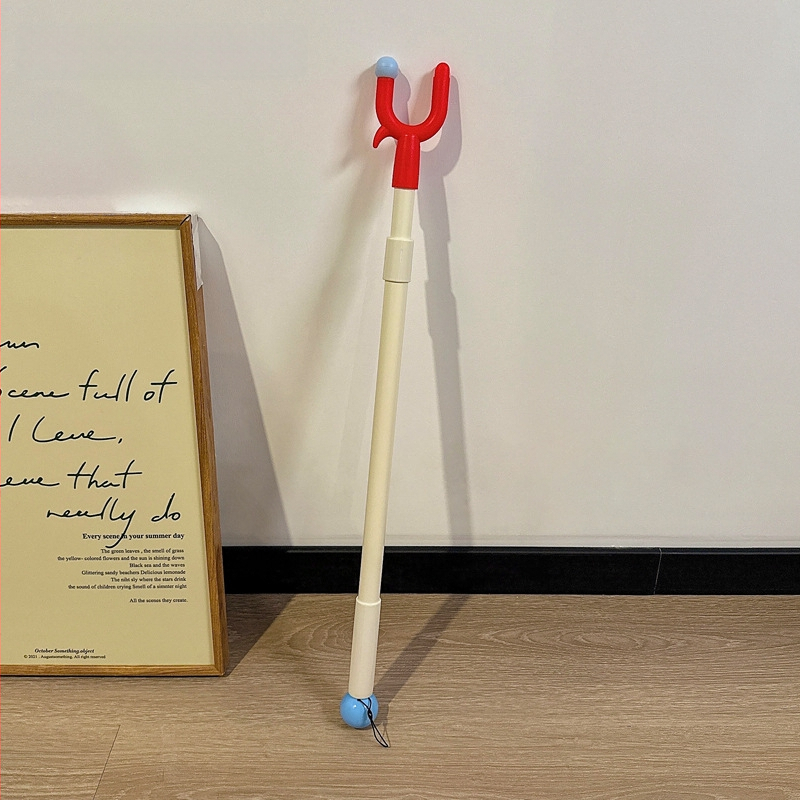 Scene full of
I Leve,
that
really do
Every scene in your summer day
The green leaves , the smell of grass
the yellow- colored flowers and the sun is shining down
Black sea and the waves
Glittering sandy beachers Delicious lemonade
The niht sly where the stars drink
the sound of children crying Smell of a simmer night
All the scenes they create.
October Something.object
© 2021 . Augustsomething. All right reserved